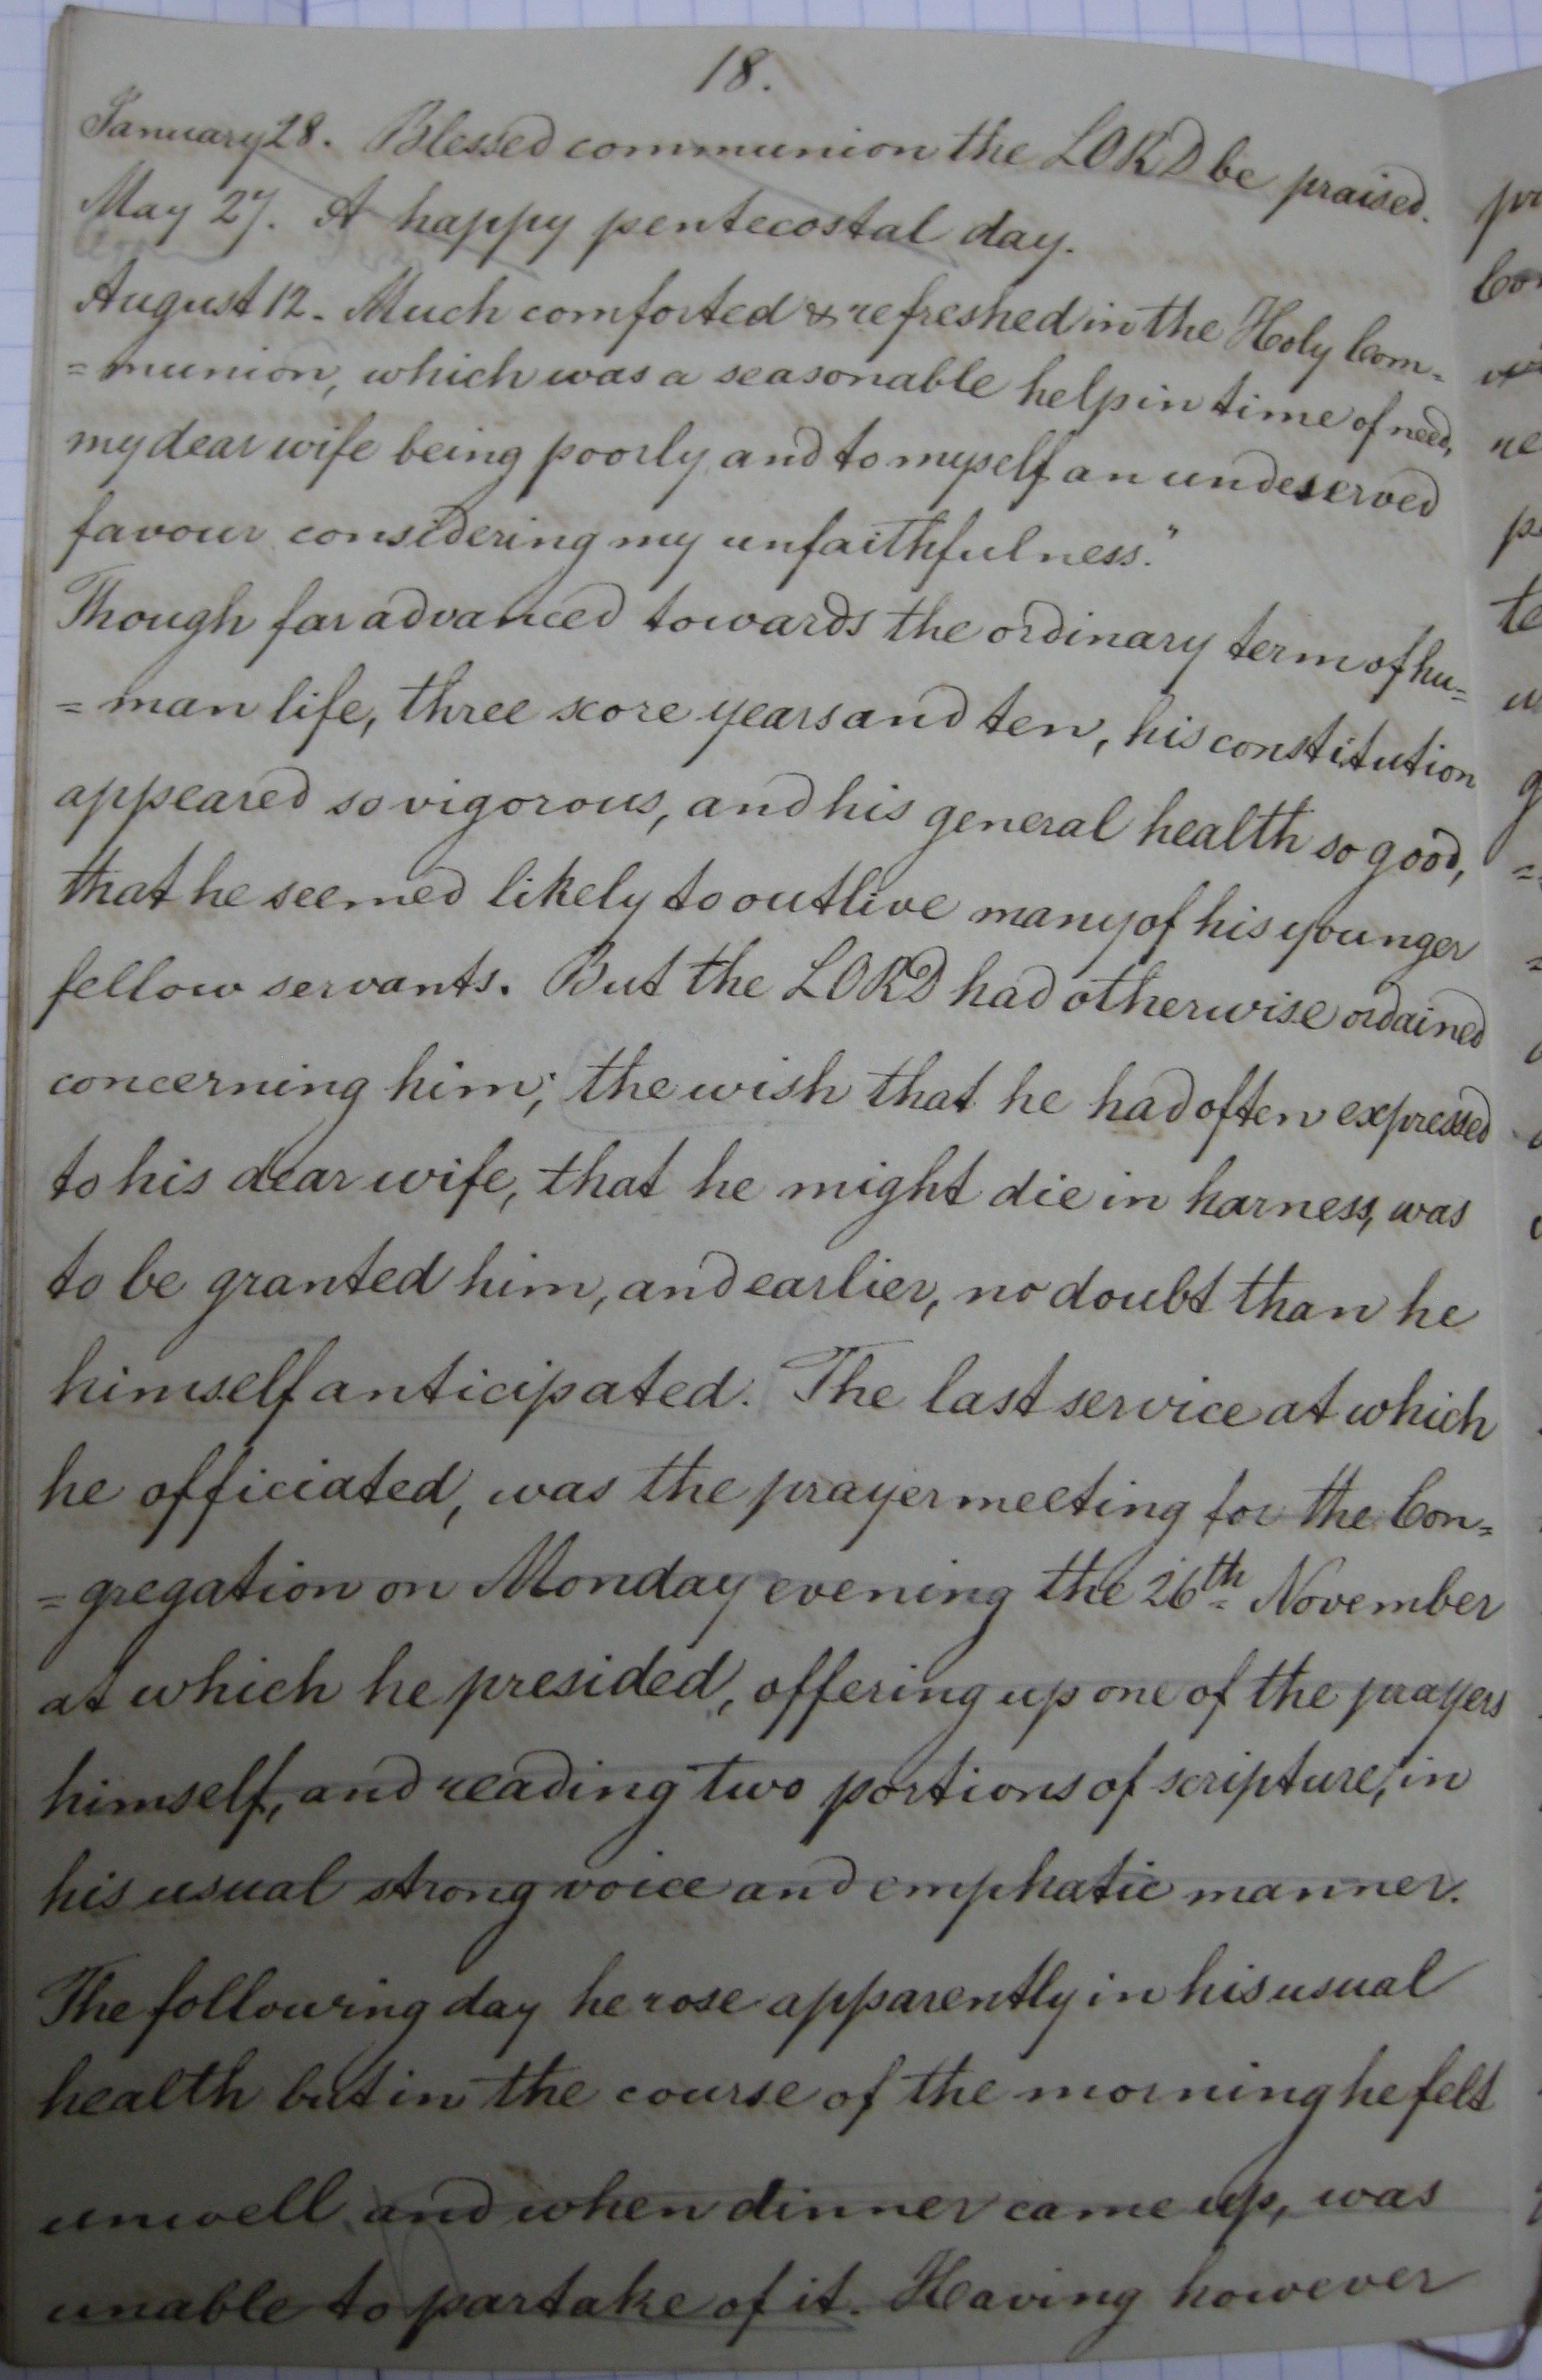 18.
January 28. Blessed communion the LORD be praised.
May 27. A happy pentecostal day.
August 12. Much comforted & refreshed in the Holy Com=
=munion, which was a seasonable help in time of need,
my dear wife being poorly, and to myself an undeserved
favour considering my unfaithfulness."
Though far advanced towards the ordinary term of hu=
=man life, three score years and ten, his constitution
appeared so vigorous, and his general health so good,
that he seemed likely to outlive many of his younger
fellow servants. But the LORD had otherwise ordained
concerning him; the wish that he had often expressed
to his dear wife, that he might die in harness, was
to be granted him, and earlier, no doubt than he
himself anticipated. The last service at which
he officiated, was the prayer meeting for the Con=
=gregation on Monday evening the 26th November
at which he presided, offering up one of the prayers
himself, and reading two portions of scripture, in
his usual strong voice and emphatic manner.
The following day he rose apparently in his usual
health but in the course of the morning he felt
unwell and when dinner came up, was
unable to partake of it. Having however